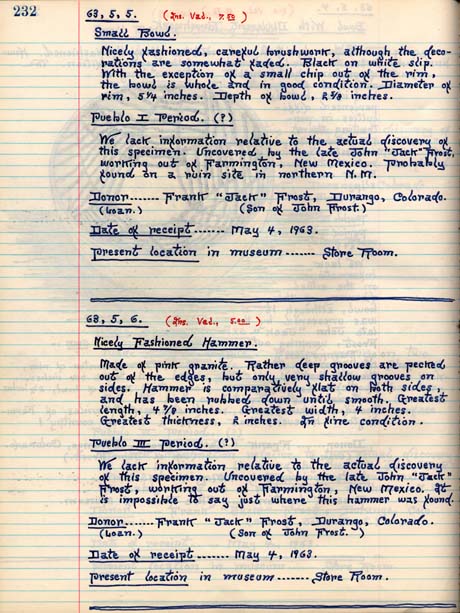 232
63, 5, 5. (Ins. Val., 7.50)
Small Bowl.
Nicely fashioned, careful brushwork, although the deco-
rations are somewhat faded. Black on white slip.
With the exception of a small chip out of the rim,
the bowl is whole and in good condition. Diameter of
rim, 5 1/4 inches. Depth of bowl, 2 3/8 inches.
Pueblo I Period. (?)
We lack information relative to the actual discovery of
this specimen. Uncovered by the late John "Jack" Frost,
working out of Farmington, New Mexico. Probably
found on a ruin site in northern N.M.
Donor------- Frank "Jack" Frost, Durango, Colorado.
(Loan.) (Son of John Frost.)
Date of receipt------- May 4, 1963.
Present location in museum------- Store Room.
63, 5, 6. (Ins. Val., 5.00)
Nicely Fashioned Hammer.
Made of pink granite. Rather deep grooves are pecked
out of the edges, but only very shallow grooves on
sides. Hammer is comparatively flat on both sides,
and has been rubbed down until smooth. Greatest
length, 4 7/8 inches. Greatest width, 4 inches.
Greatest thickness, 2 inches. In fine condition.
Pueblo III Period. (?)
We lack information relative to the actual discovery
of this specimen. Uncovered by the late John "Jack"
Frost, working out of Farmington, New Mexico. It
is impossible to say just where this hammer was found.
Donor------- Frank "Jack" Frost, Durango, Colorado.
(Loan.) (Son of John Frost.)
Date of receipt------- May 4, 1963.
Present location in museum------- Store Room.